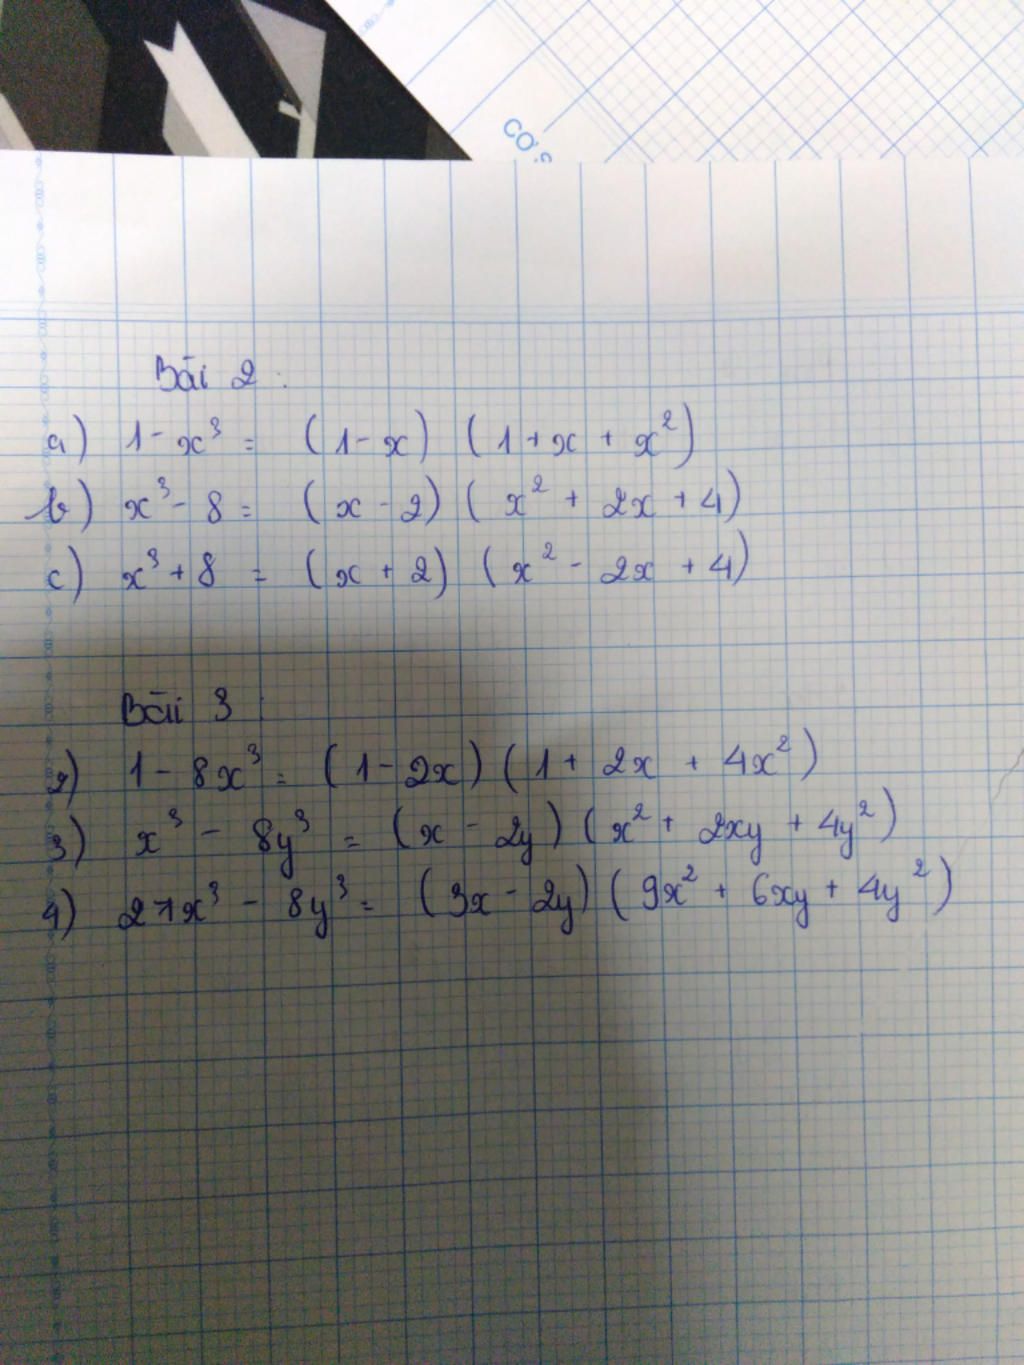 Bài 2 :
a) 1 - x³ = (1 - x) (1 + x + x²)
b) x³ - 8 = (x - 2) (x² + 2x + 4)
c) x³ + 8 = (x + 2) (x² - 2x + 4)
Bài 3 :
2) 1 - 8x³ = (1 - 2x) (1 + 2x + 4x²)
3) x³ - 8y³ = (x - 2y) (x² + 2xy + 4y²)
4) 27x³ - 8y³ = (3x - 2y) (9x² + 6xy + 4y²)